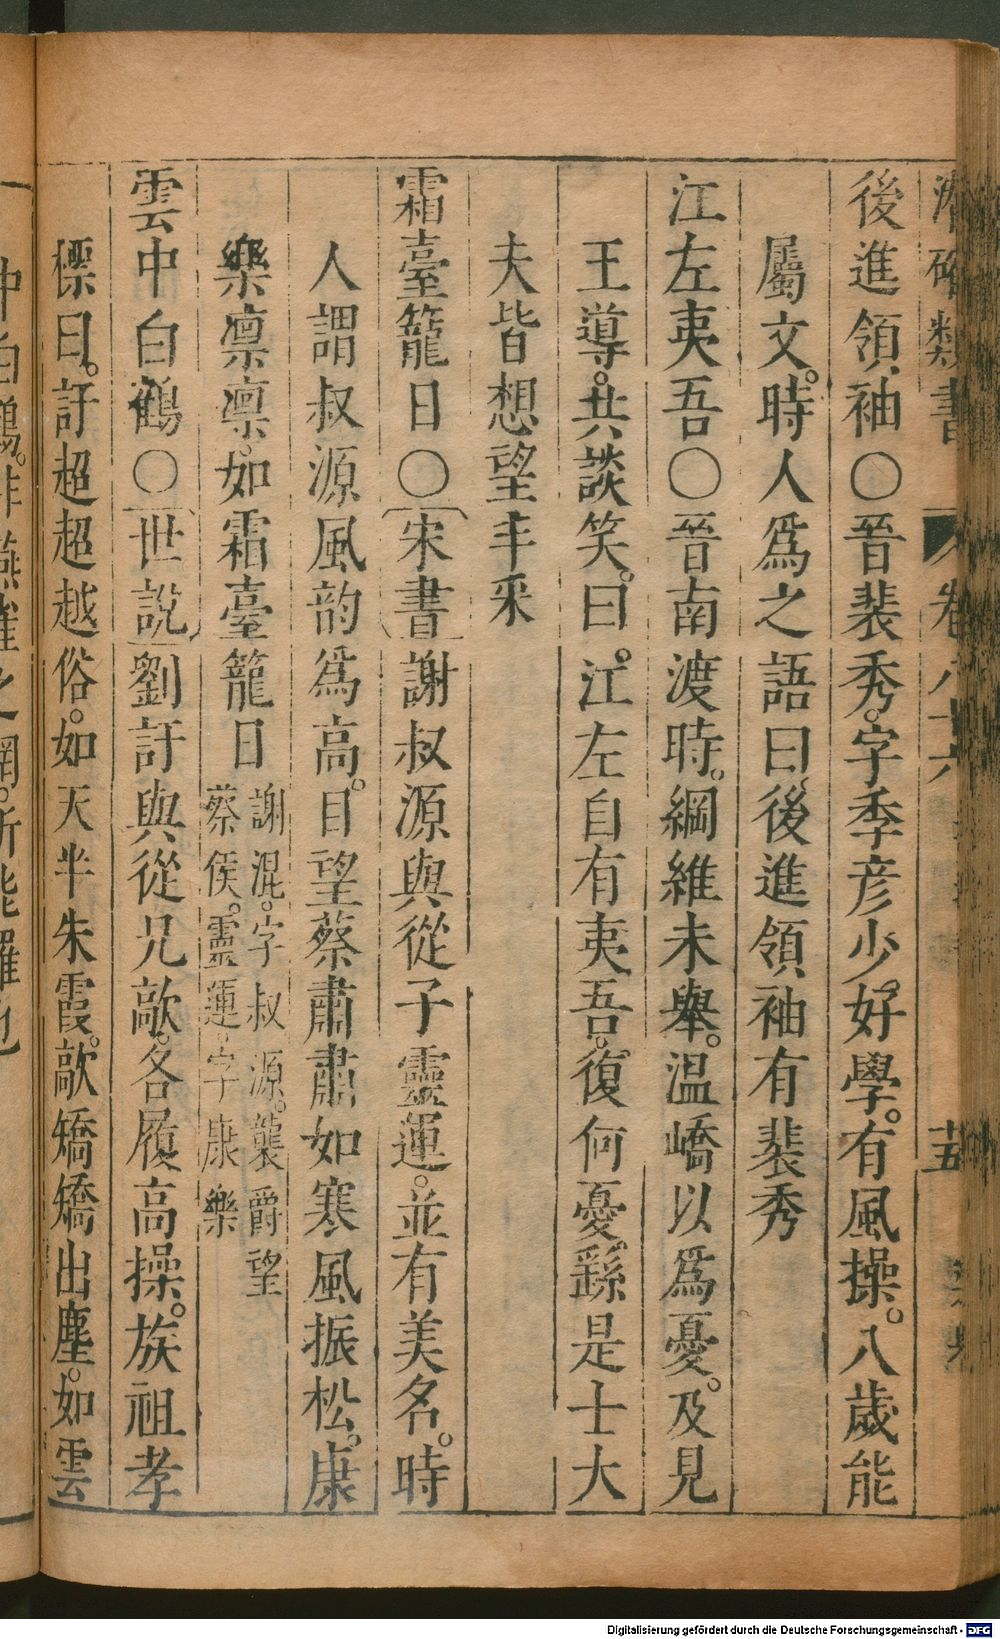 類書 卷八十六 十五
後進領袖〇晉裴秀。字季彥少。好學。有風操。八歲能
屬文。時人爲之語曰後進領袖有裴秀
江左夷吾〇晉南渡時。綱維未舉。温嶠以爲憂。及見
王導。共談笑。曰。江左自有夷吾。復何憂。繇是士大
夫皆想望丰采
霜臺籠日〇宋書謝叔源與從子靈運。並有美名。時
人謂叔源風韵爲高。目望蔡肅肅如寒風振松。康
樂凛凛。如霜臺籠日
謝混。字叔源。襲爵望
蔡侯。靈運字康樂
雲中白鶴〇世說劉訏與從兄歊。各履高操。族祖孝
標曰。訏超超越俗。如天半朱霞。歊矯矯出塵。如雲
中白鶴。非燕雀之網。所能羅也
Digitalisierung gefördert durch die Deutsche Forschungsgemeinschaft - DFG